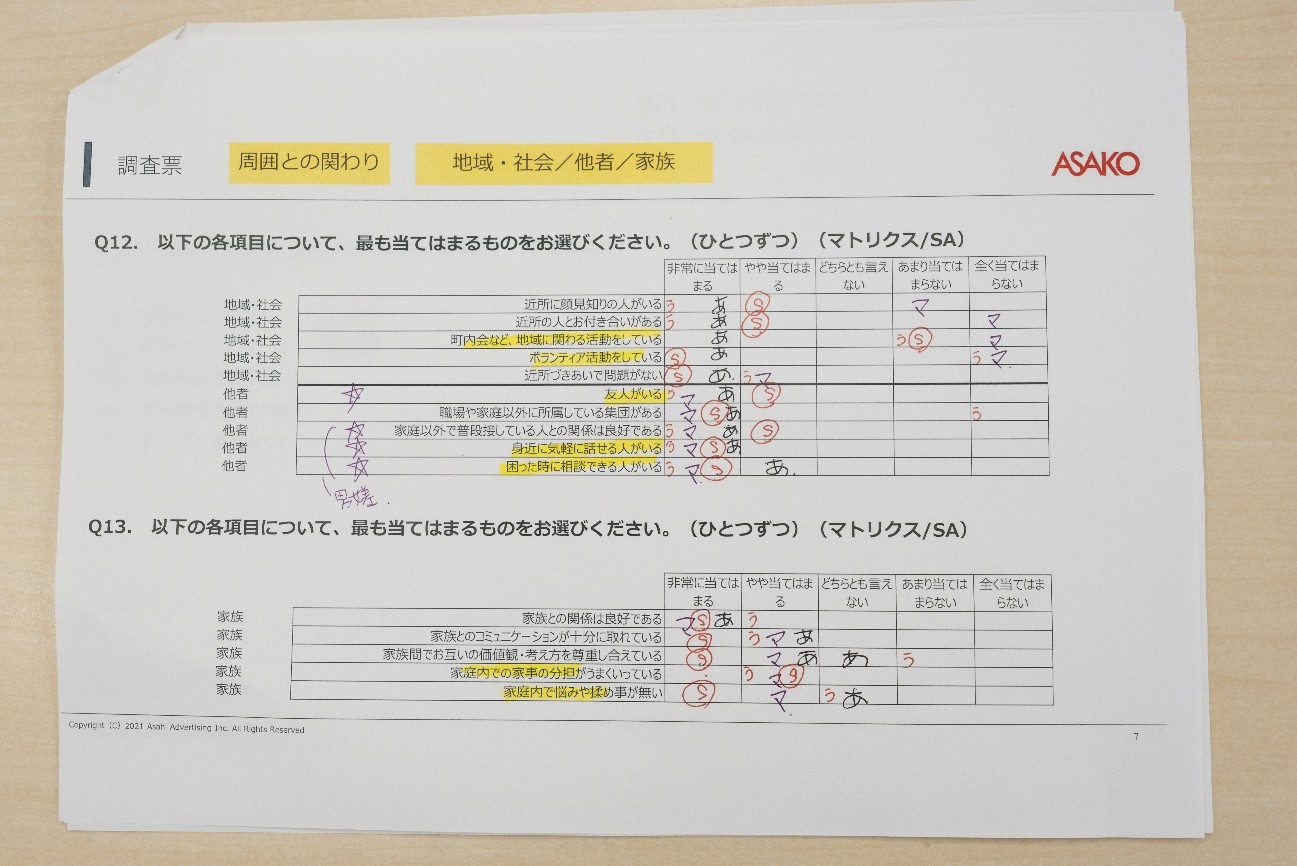 調査票 周囲との関わり 地域・社会／他者／家族 ASAKO
Q12. 以下の各項目について、最も当てはまるものをお選びください。（ひとつずつ）（マトリクス/SA）
非常に当てはまる やや当てはまる どちらとも言えない あまり当てはまらない 全く当てはまらない
地域・社会 近所に顔見知りの人がいる う あ S マ
地域・社会 近所の人とお付き合いがある う あ S マ
地域・社会 町内会など、地域に関わる活動をしている あ う S マ
地域・社会 ボランティア活動をしている S あ う マ
地域・社会 近所づきあいで問題がない S あ う マ
他者 ☆ 友人がいる う マ あ S
他者 職場や家庭以外に所属している集団がある マ S あ う
他者 ☆ 家庭以外で普段接している人との関係は良好である う マ あ S
他者 ☆ 身近に気軽に話せる人がいる う マ S あ
他者 ☆ 困った時に相談できる人がいる う マ S あ
Q13. 以下の各項目について、最も当てはまるものをお選びください。（ひとつずつ）（マトリクス/SA）
非常に当てはまる やや当てはまる どちらとも言えない あまり当てはまらない 全く当てはまらない
家族 家族との関係は良好である マ S あ う
家族 家族とのコミュニケーションが十分に取れている S う マ あ
家族 家族間でお互いの価値観・考え方を尊重し合えている S マ あ あ う
家族 家庭内での家事の分担がうまくいっている う マ S
家族 家庭内で悩みや揉め事が無い S マ う あ
Copyright (C) 2021 Asahi Advertising Inc. All Rights Reserved
7